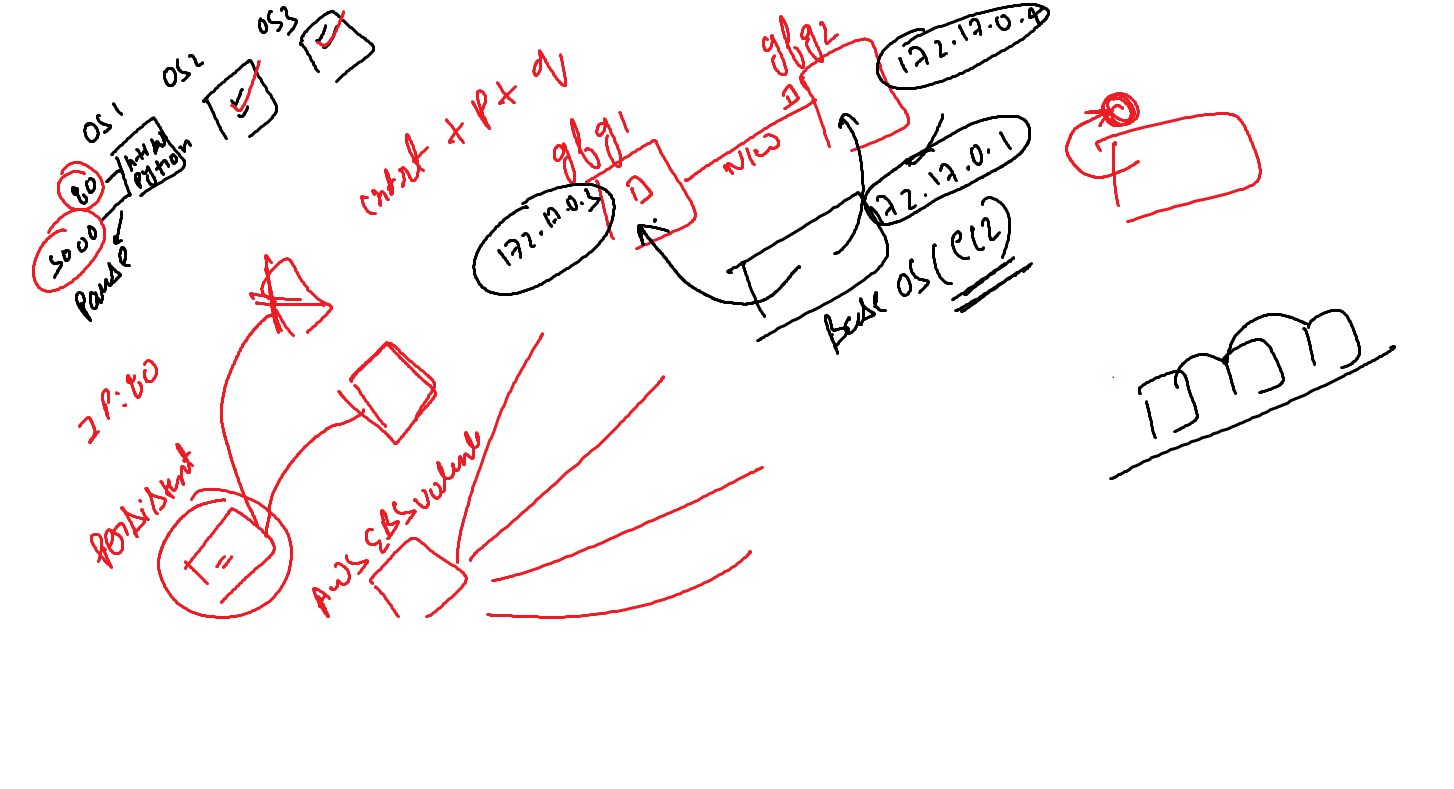 OS1
OS2
OS3
80
5000
python
Pause
cntrl + P + q
gfg1
gfg2
172.17.0.3
172.17.0.4
172.17.0.1
N/W
Base OS (EC2)
C
IP:80
Persistent
AWS EBS volume